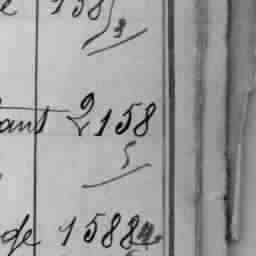 158
3
ant 2158
5
de 1588